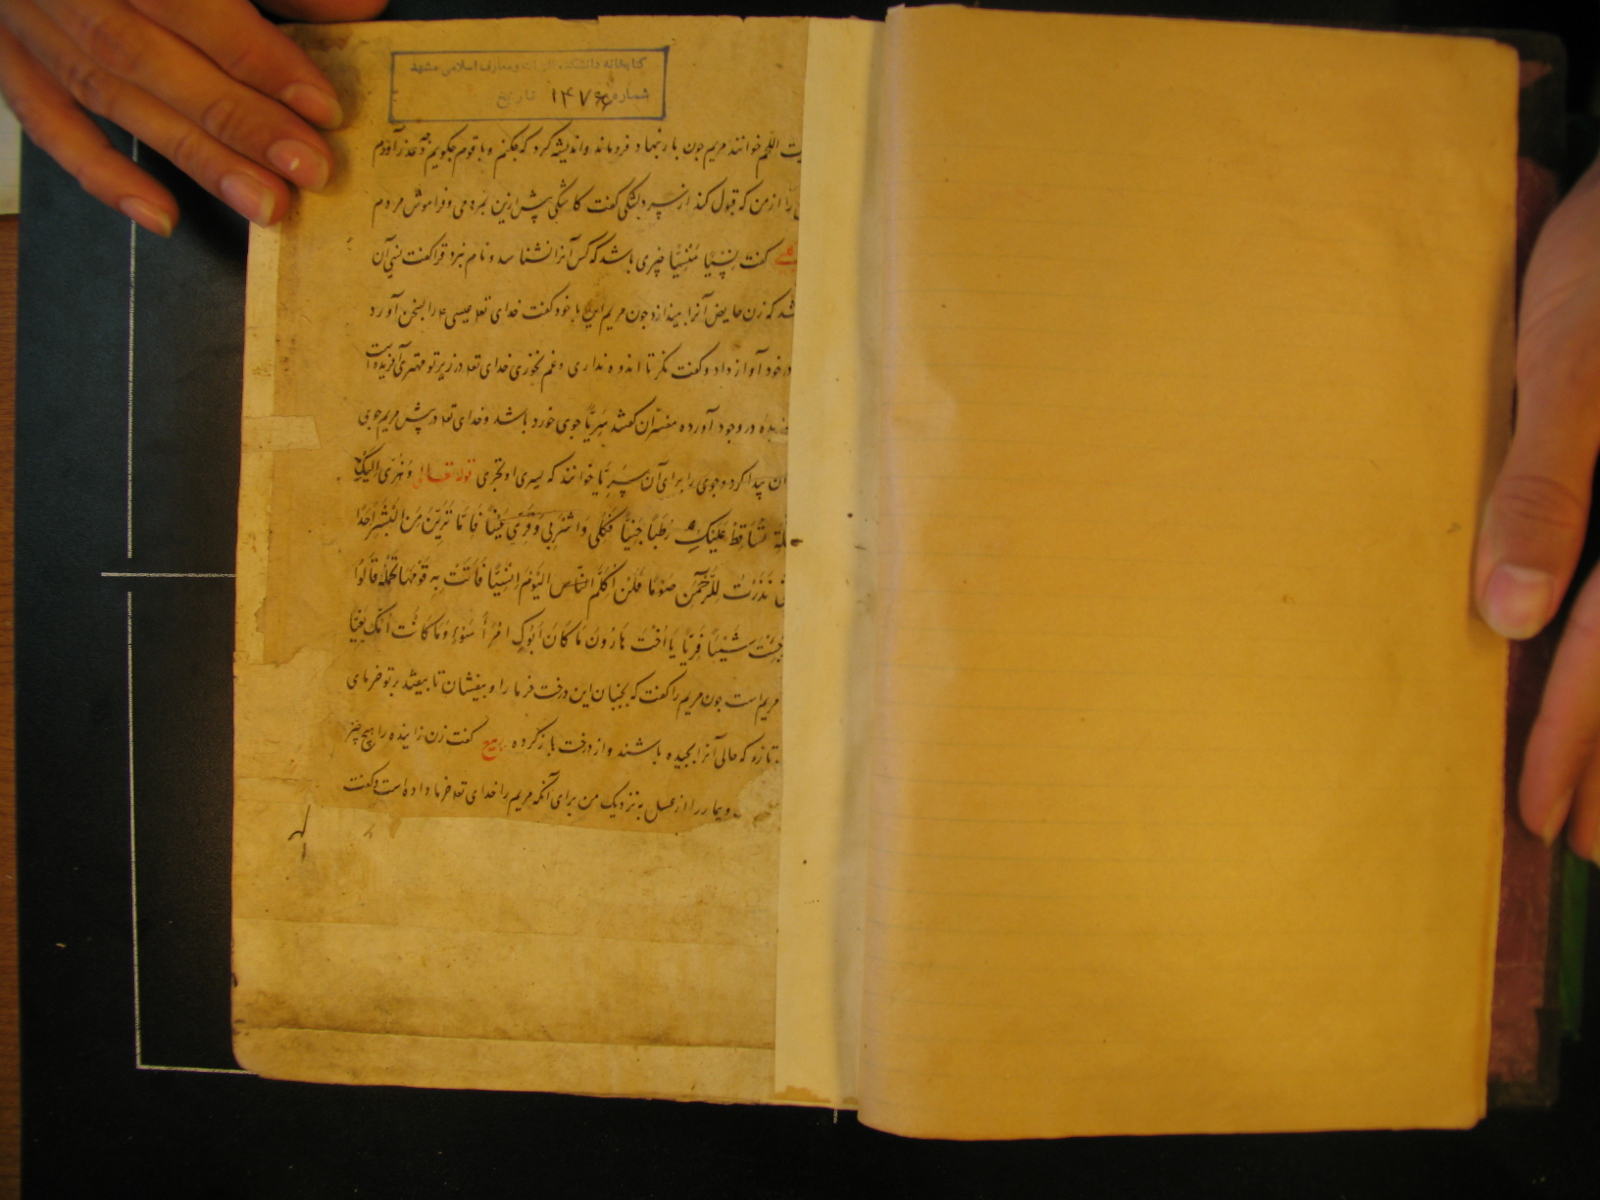 کتابخانه دانشکده الهیات و معارف اسلامی مشهد
شماره ۱۴۷۶ تاریخ
اللحم خوانند مریم چون بار بنهاد فروماند و اندیشه کرد که چکنم و با قوم چکویم و چه عذر آورم
را از من که قبول کند از سر دلتنگی گفت کاشکی پیش ازین بمردمی و فراموش مردم
گفت نسیا منسیا چیزی باشد که کس آنرا نشناسد و نام نبرد فرا گفت نسی آن
شد که زن حایض آنرا بیندازد چون مریم این با خود گفت خدای تعا عیسی ع را بسخن آورد
در خود آواز داد و گفت نکر تا اندوه نداری و غم نخوری خدای تعا در زیر تو مهتری آفریده است
در وجود آورده مفسران گفتند سریا جوی خورد باشد و خدای تعا در پیش مریم جوی
پیدا کرد و جوی را برای آن سریا خوانند که یسری او تجری قوله تعالی وَهُزّی اِلَیکِ
تُسَاقِطْ عَلَیْکِ رُطَبًا جَنِیًّا فَکُلِی وَاشْرَبِی وَقَرِّی عَیْنًا فَاِمَّا تَرَیِنَّ مِنَ الْبَشَرِ اَحَدًا
نَذَرْتُ لِلرَّحْمٰنِ صَوْمًا فَلَنْ اُکَلِّمَ الْیَوْمَ اِنْسِیًّا فَاَتَتْ بِهِ قَوْمَهَا تَحْمِلُهُ قَالُوا
جِئْتِ شَیْئًا فَرِیًّا یَا اُخْتَ هَارُونَ مَا کَانَ اَبُوکِ امْرَاَ سَوْءٍ وَمَا کَانَتْ اُمُّکِ بَغِیًّا
مریم است چون مریم را گفت که بجنبان این درخت خرما را و بیفشان تا بیفتد بر تو خرمای
تازه که حالی آنرا بچیده باشند و از درخت باز کرده ربیع گفت زن زاینده را هیچ چیز
و بیمار را از عسل به نزدیک من برای آنکه مریم را خدای تعا خرما داده است و گفت